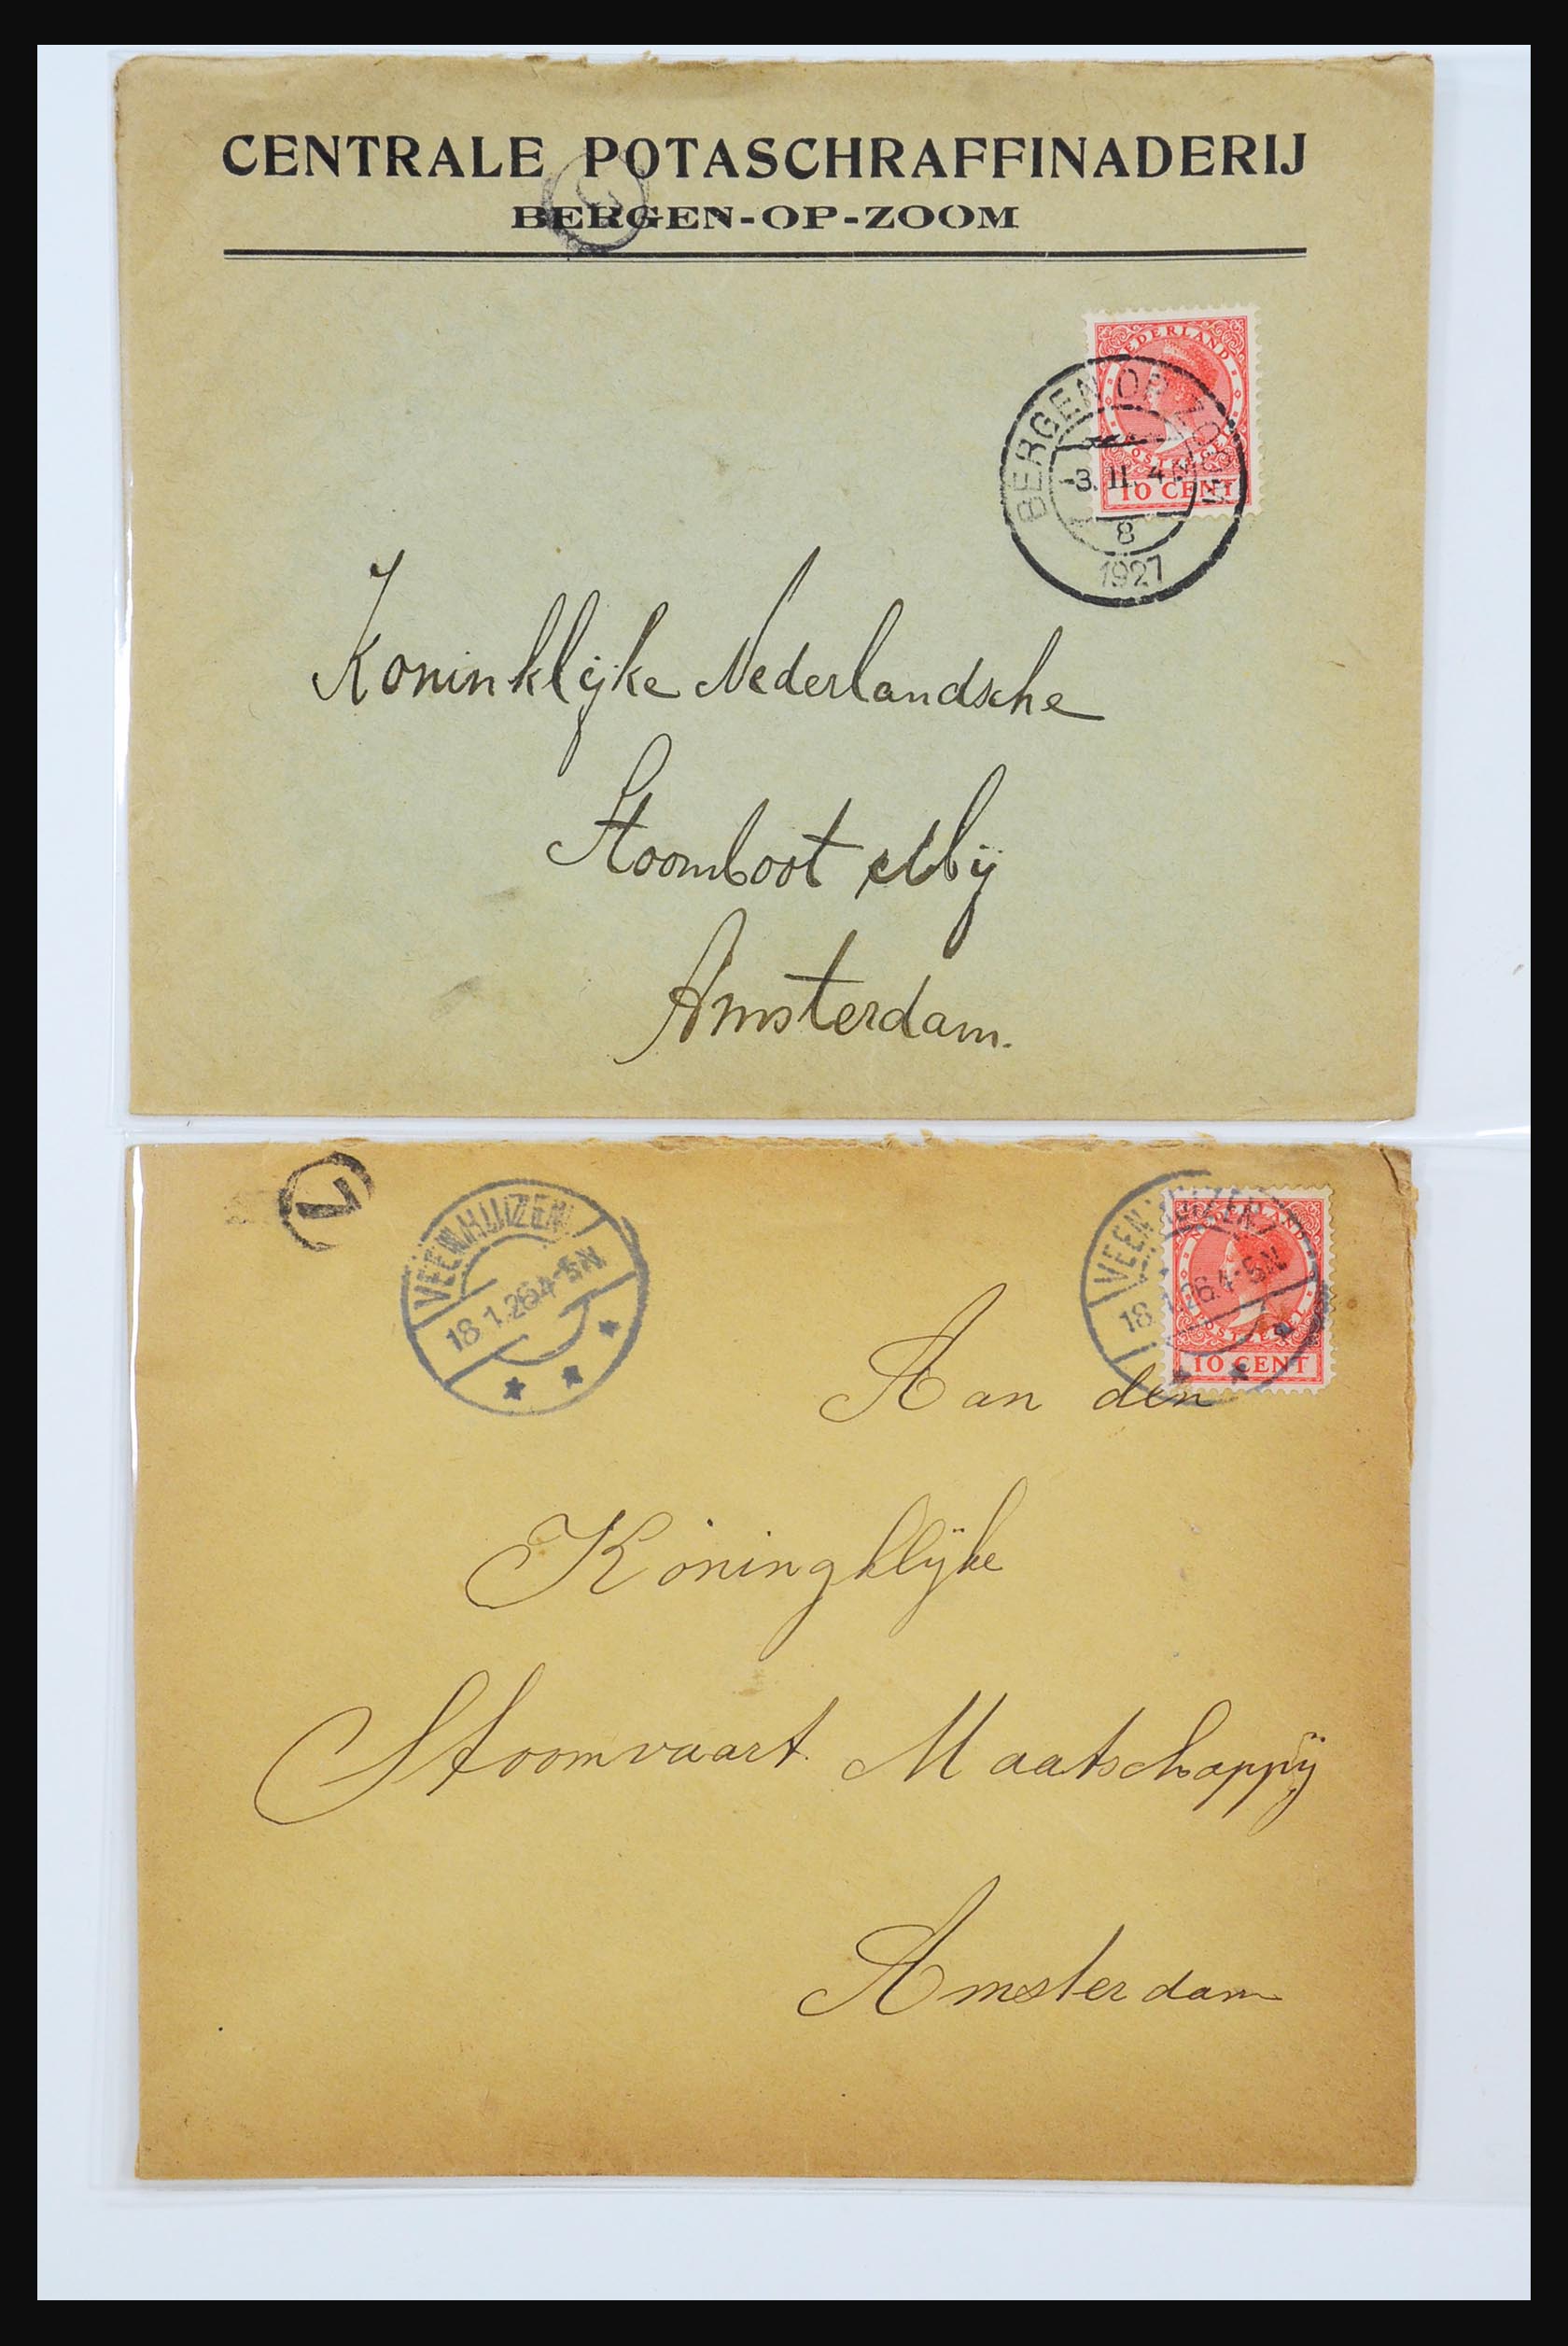 CENTRALE POTASCHRAFFINADERIJ
BERGEN-OP-ZOOM
NEDERLAND
10 CENT
BERGEN OP ZOOM
-3. II. 4
8
1927
Koninklijke Nederlandsche
Stoomboot Mij
Amsterdam.
V
VEENHUIZEN
18.1.26.4-5N
NEDERLAND
10 CENT
VEENHUIZEN
18.1.26.4-5N
Aan den
Koningklijke
Stoomvaart Maatschappij
Amsterdam